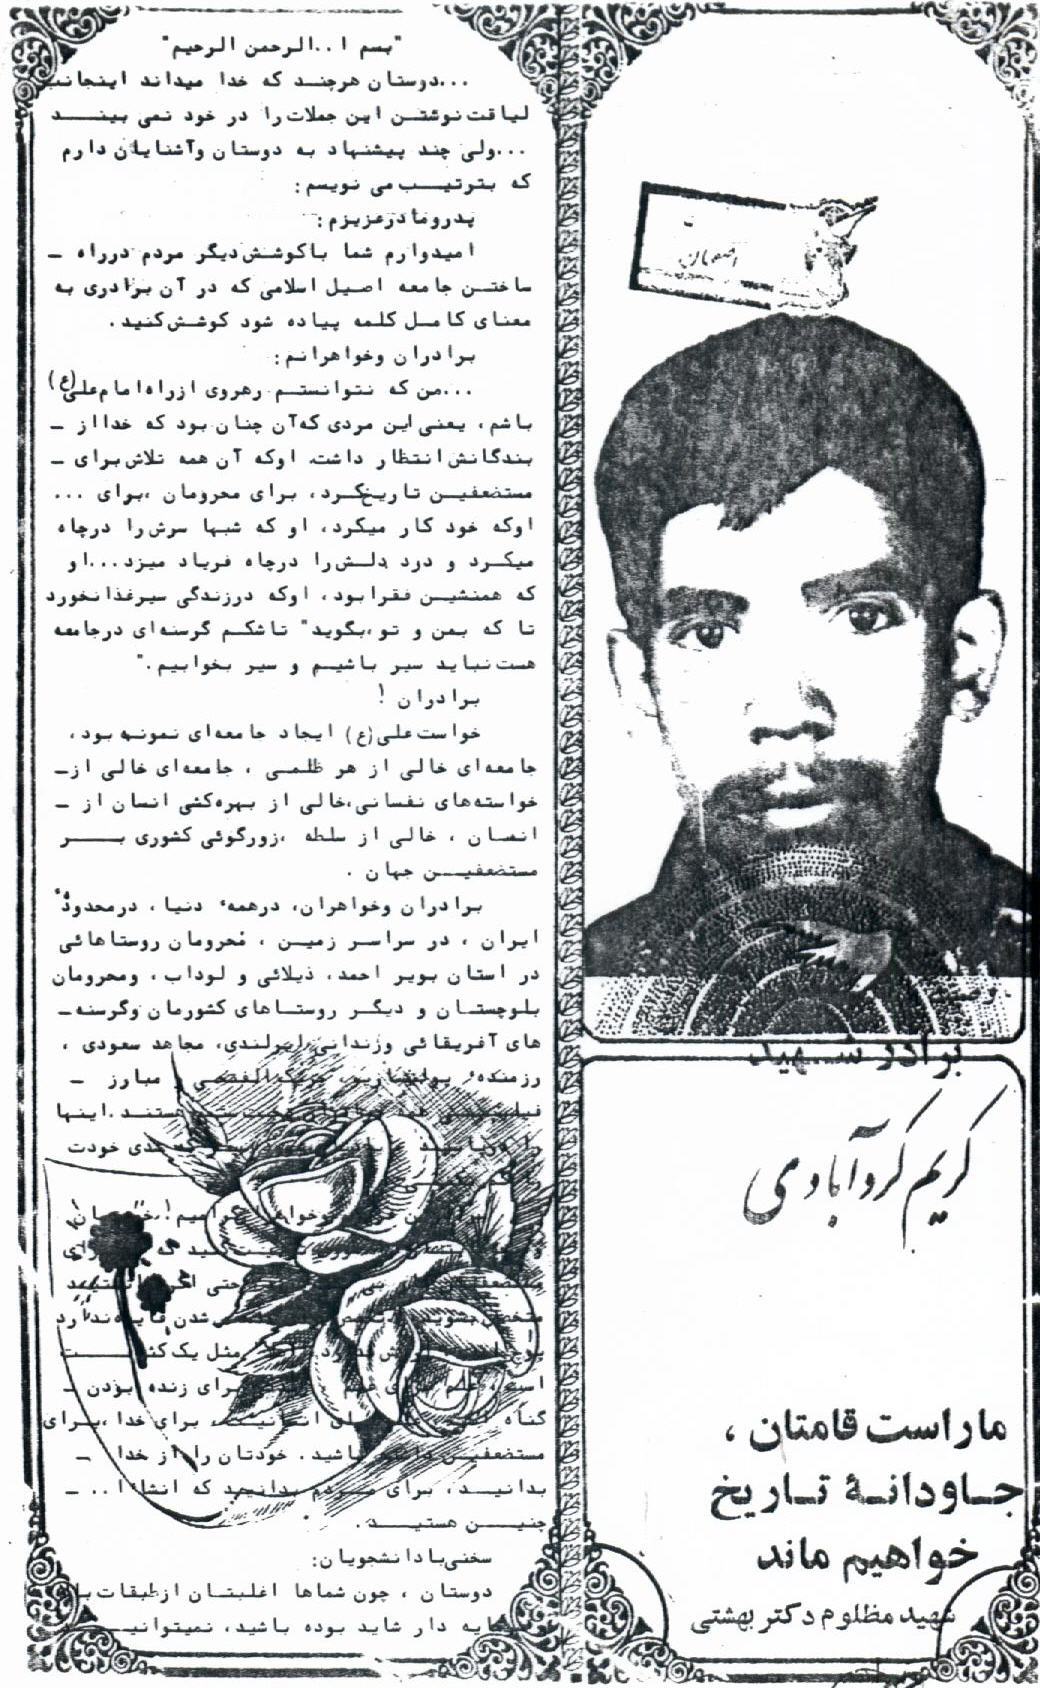 "بسم ا..الرحمن الرحیم"
...دوستان هرچند که خدا میداند اینجانب
لیاقت نوشتن این جملات را در خود نمی بیند
...ولی چند پیشنهاد به دوستان وآشنایان دارم
که بترتیب می نویسم:
پدرومادرعزیزم:
امیدوارم شما باکوشش دیگر مردم درراه ـ
ساختن جامعه اصیل اسلامی که در آن برادری به
معنای کامل کلمه پیاده شود کوشش کنید.
برادران وخواهرانم:
...من که نتوانستم رهروی ازراه امام علی(ع)
باشم، یعنی این مردی که آن چنان بود که خدااز ـ
بندگانش انتظار داشت. اوکه آن همه تلاش برای ـ
مستضعفین تاریخ کرد، برای محرومان ،برای ...
اوکه خود کار میکرد، او که شبها سرش را درچاه
میکرد و درد دلش را درچاه فریاد میزد...او
که همنشین فقرا بود، اوکه درزندگی سیرغذا نخورد
تا که بمن و تو ،بگوید" تاشکم گرسنه ای درجامعه
هست نباید سیر باشیم و سیر بخوابیم."
برادران !
خواست علی(ع) ایجاد جامعه ای نمونه بود،
جامعه ای خالی از هر ظلمی ، جامعه ای خالی ازـ
خواسته های نفسانی،خالی از بهره کشی انسان از ـ
انسان ، خالی از سلطه ،زورگوئی کشوری بر
مستضعفین جهان .
برادران وخواهران، درهمهٔ دنیا ، درمحدودهٔ
ایران ، در سراسر زمین ، محرومان روستاهائی
در استان بویر احمد، ذیلائی و لوداب ، ومحرومان
بلوچستان و دیگر روستاهای کشورمان وگرسنه ـ
های آفریقائی وزندانی ایرلندی، مجاهد سعودی ،
رزمندهٔ پولیساریو، و مبارز ـ
هستند .اینها
خودت
حتی
شدن
مثل یک
است، برای زنده بودن ـ
گناه برای خدا ،برای
مستضعفین باشید. خودتان را از خدا ـ
بدانید، برای مردم بدانید که انشاا.. ـ
چنین هستید.
سخنی بادانشجویان:
دوستان ، چون شماها اغلبتان ازطبقات
دار شاید بوده باشید،
اصفهان
برادر شهید
کریم کروآبادی
ماراست قامتان ،
جاودانهٔ تاریخ
خواهیم ماند
شهید مظلوم دکتر بهشتی